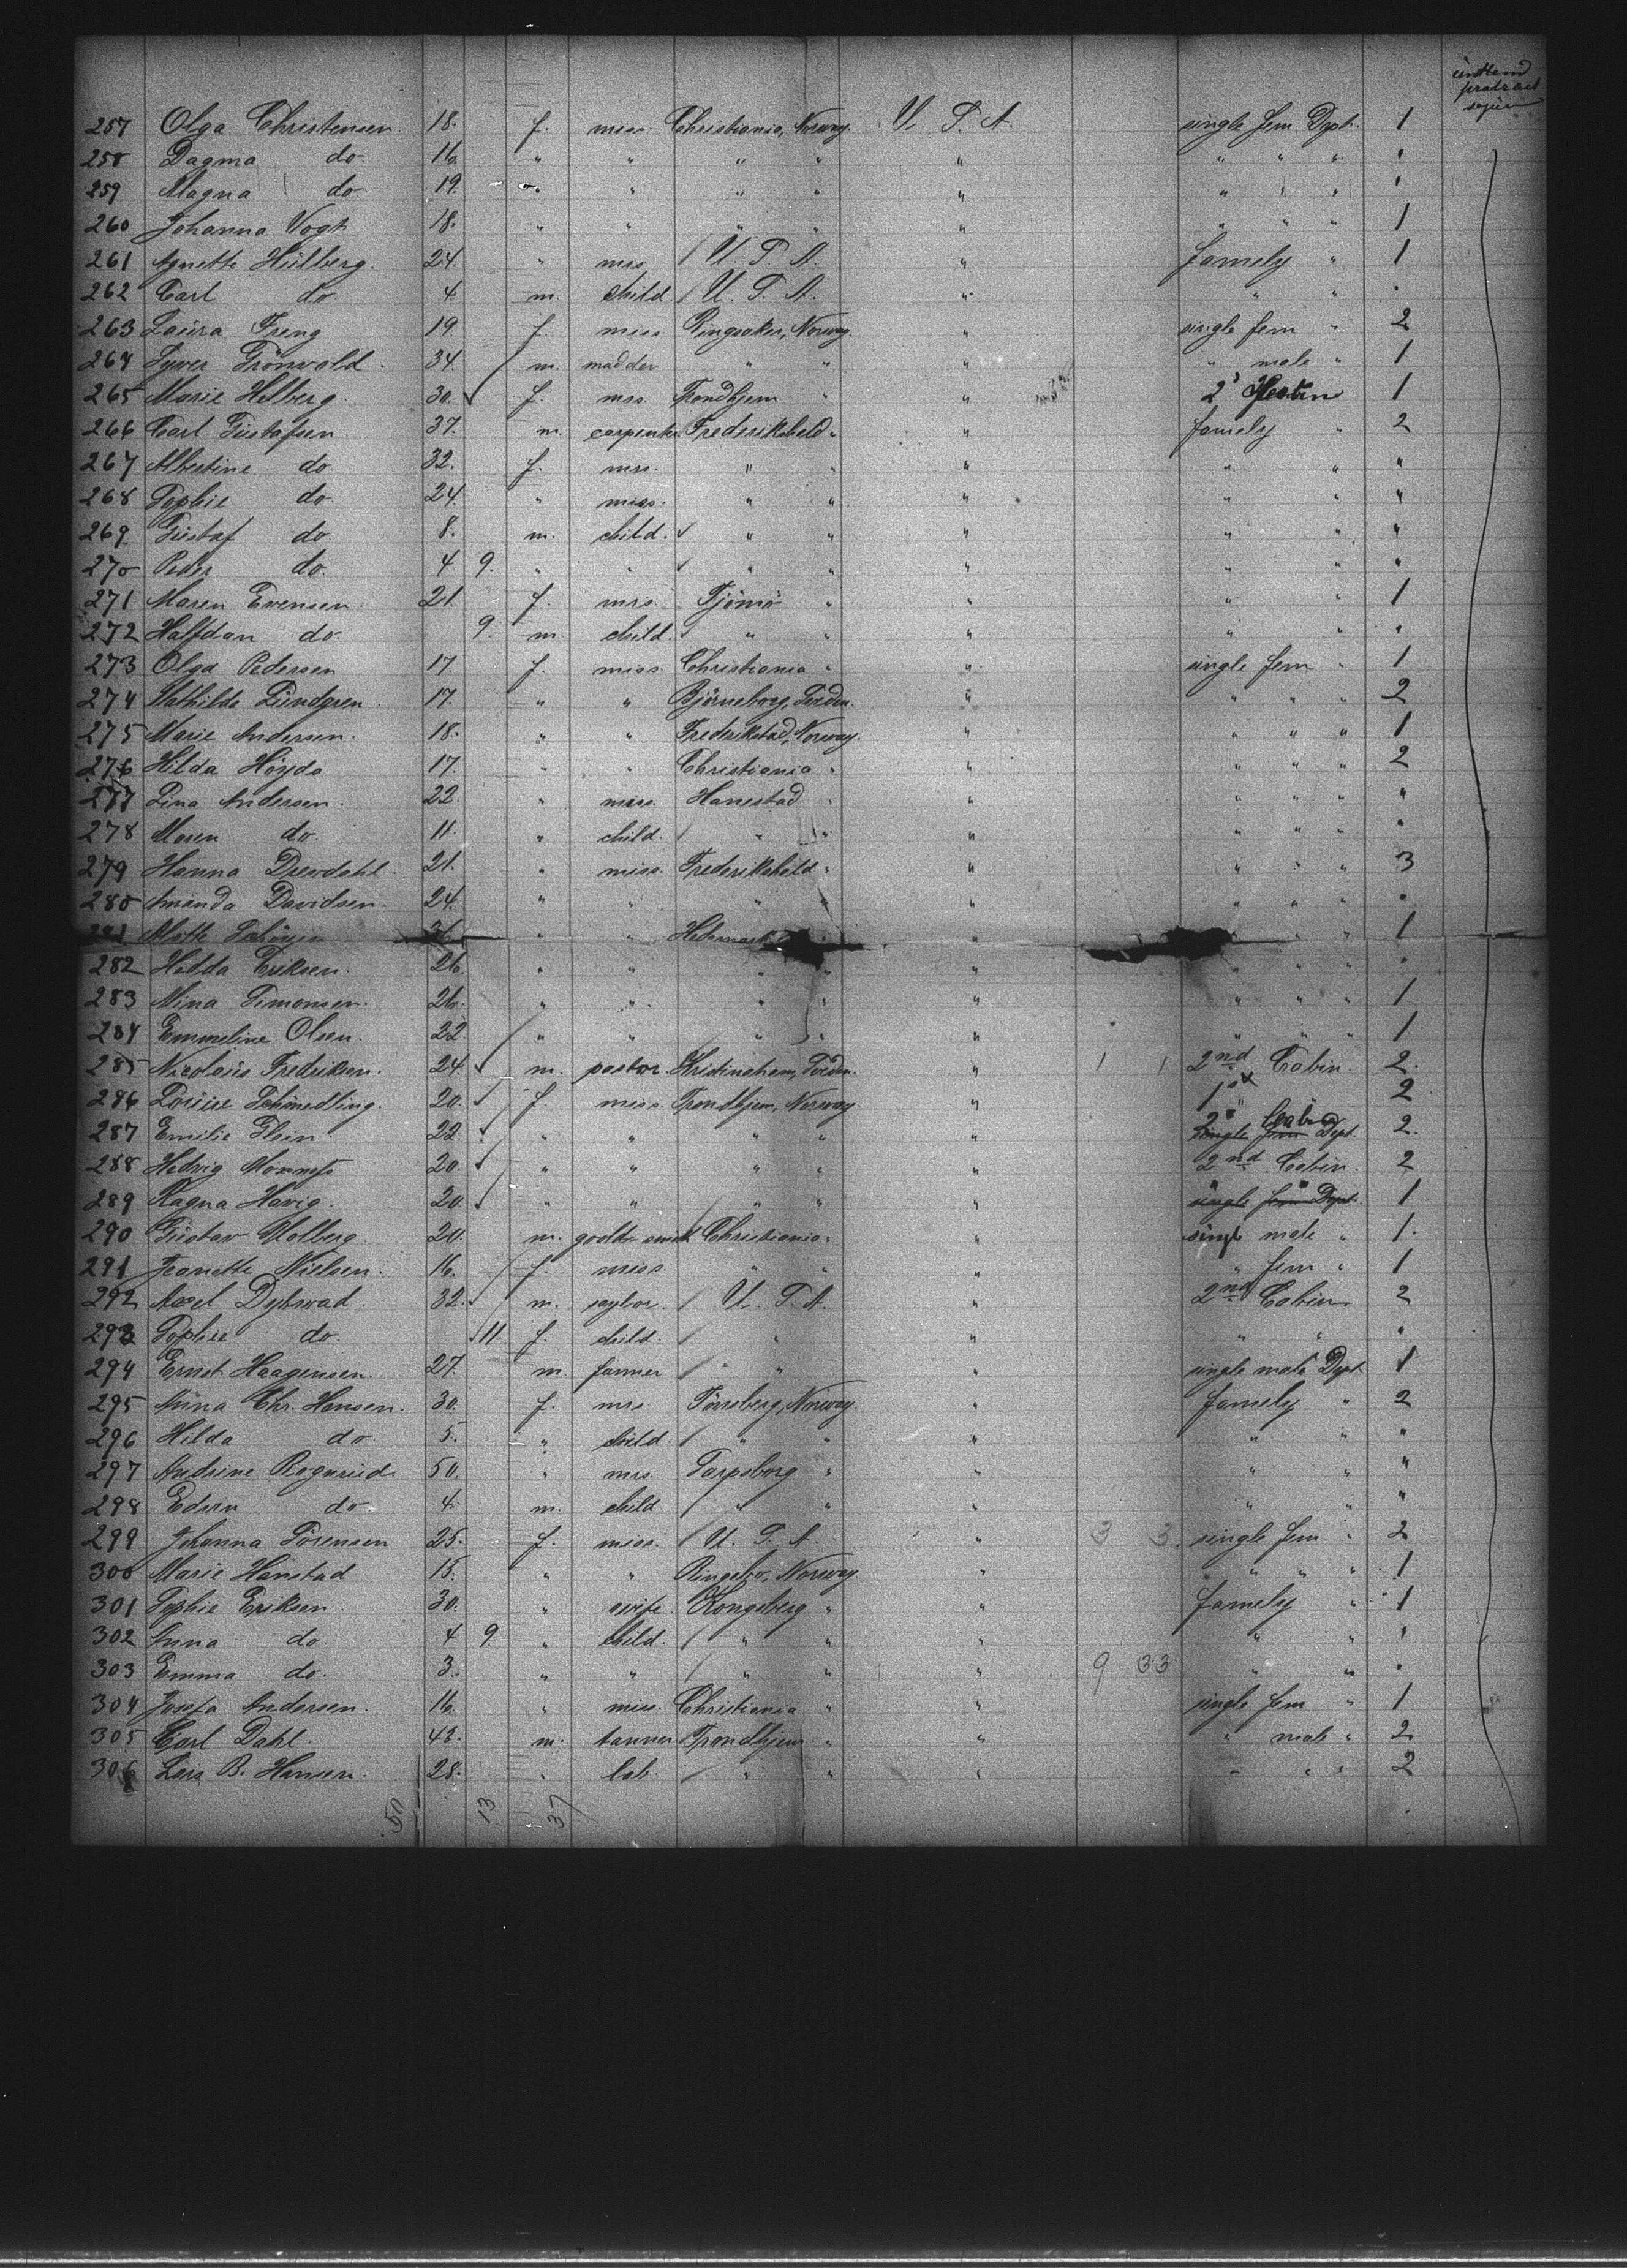 intend protract sojurn
257 Olga Christensen. 18. f. miss. Christiania, Norway. U. S. A. single fem Dept. 1
258 Dagma do 16. " " " " " " " " "
259 Magna do 19. " " " " " " " " "
260 Johanna Vogt 18. " " " " " " " " 1
261 Agnette Hülberg. 24. " mrs / U. S. A. " famely " 1
262 Carl do 4 m. child. / U. S. A. " " " "
263 Laura Freng 19 f. miss Ringsaker, Norway. " single fem " 2
264 Syver Grönvold. 34. m. madder " " " " male " 1
265 Marie Helberg. 30. f. mrs. Trondhjem " " 2' 1
266 Carl Gustafsen. 37. m. carpenter Frederikshald " " famely " 2
267 Albertine do 32. f. mrs. " " " " " "
268 Sophie do. 24. " miss. " " " " " "
269 Gustaf do 8. m. child. " " " " " "
270 Peder do. 4 9. " " " " " " " "
271 Maren Evensen. 21. f. mrs. Tjömö " " " " 1
272 Halfdan do. 9. m. child. " " " " " "
273 Olga Pedersen 17. f. miss. Christiania " " single fem " 1
274 Mathilde Lundgren. 17. " " Björneborg, Sveden. " " " " 2
275 Marie Andersen. 18. " " Fredrikstad, Norway. " " " " 1
276 Hilda Höyda 17. " " Christiania " " " " " 2
277 Lina Andersen. 22. " miss. Hanestad " " " " " "
278 Maren do. 11. " child. / " " " " " " "
279 Hanna Drevdahl. 21. " miss. Frederikshald " " " " " 3
280 Amanda Davidsen. 24. " " " " " " " " "
281 " " " " " " 1
282 Hedda Eriksen. 26. " " " " " " " " "
283 Mina Simonsen. 26. " " " " " " " " 1
284 Emmeline Olsen. 22. " " " " " " " " 1
285 Nicolaus Fredriksen. 24. m. pastor. Kristineham, Sveden. " 1 1 2nd Cabin. 2.
286 Louise Schmedling. 20. f. miss. Trondhjem, Norway. " 1st " 2
287 Emilie Klein. 22. " " " " " 2" Cabin single fem Dept. 2.
288 Hedvig 20. " " " " " 2nd Cabin. 2
289 Ragna Havig. 20. " " " " " single fem Dept. 1
290 Gustav Molberg. 20. m. goold-smith Christiania " " singl male " 1.
291 Jeanette Nielsen. 16. f. miss " " " " fem " 1
292 Axel Dybwad. 32. m. saylor. / U. S. A. " 2nd Cabin. 2
293 Sophie do. 11. f. child. / " " " " "
294 Ernst Haagensen. 27. m. farmer / " " single male Dept. 1
295 Anna Chr. Hansen. 30. f. mrs Tönsberg, Norway. " famely " 2
296 Hilda do. 5. " child. / " " " " " "
297 Andrine Rognried 50. " mrs Sarpsborg " " " " "
298 Edvin do 4. m. child / " " " " " "
299 Johanna Sörensen 25. f. miss. / U. S. A. " 3 3. single fem " 2
300 Marie Hanstad 15. " " Ringebo, Norway. " " " " 1
301 Sophie Eriksen. 30. " wife. Kongsberg " " famely " 1
302 Anna do. 4 9. " child. / " " " " " "
303 Emma do. 3. " " / " " " 9 33 " " "
304 Josefa Andersen. 16. " miss. Christiania " " single fem " 1
305 Carl Dahl. 43. m. tanner Trondhjem " " " male " 2
306 Lars B. Hansen. 28. " lab. / " " " " " " 2
50 13 37